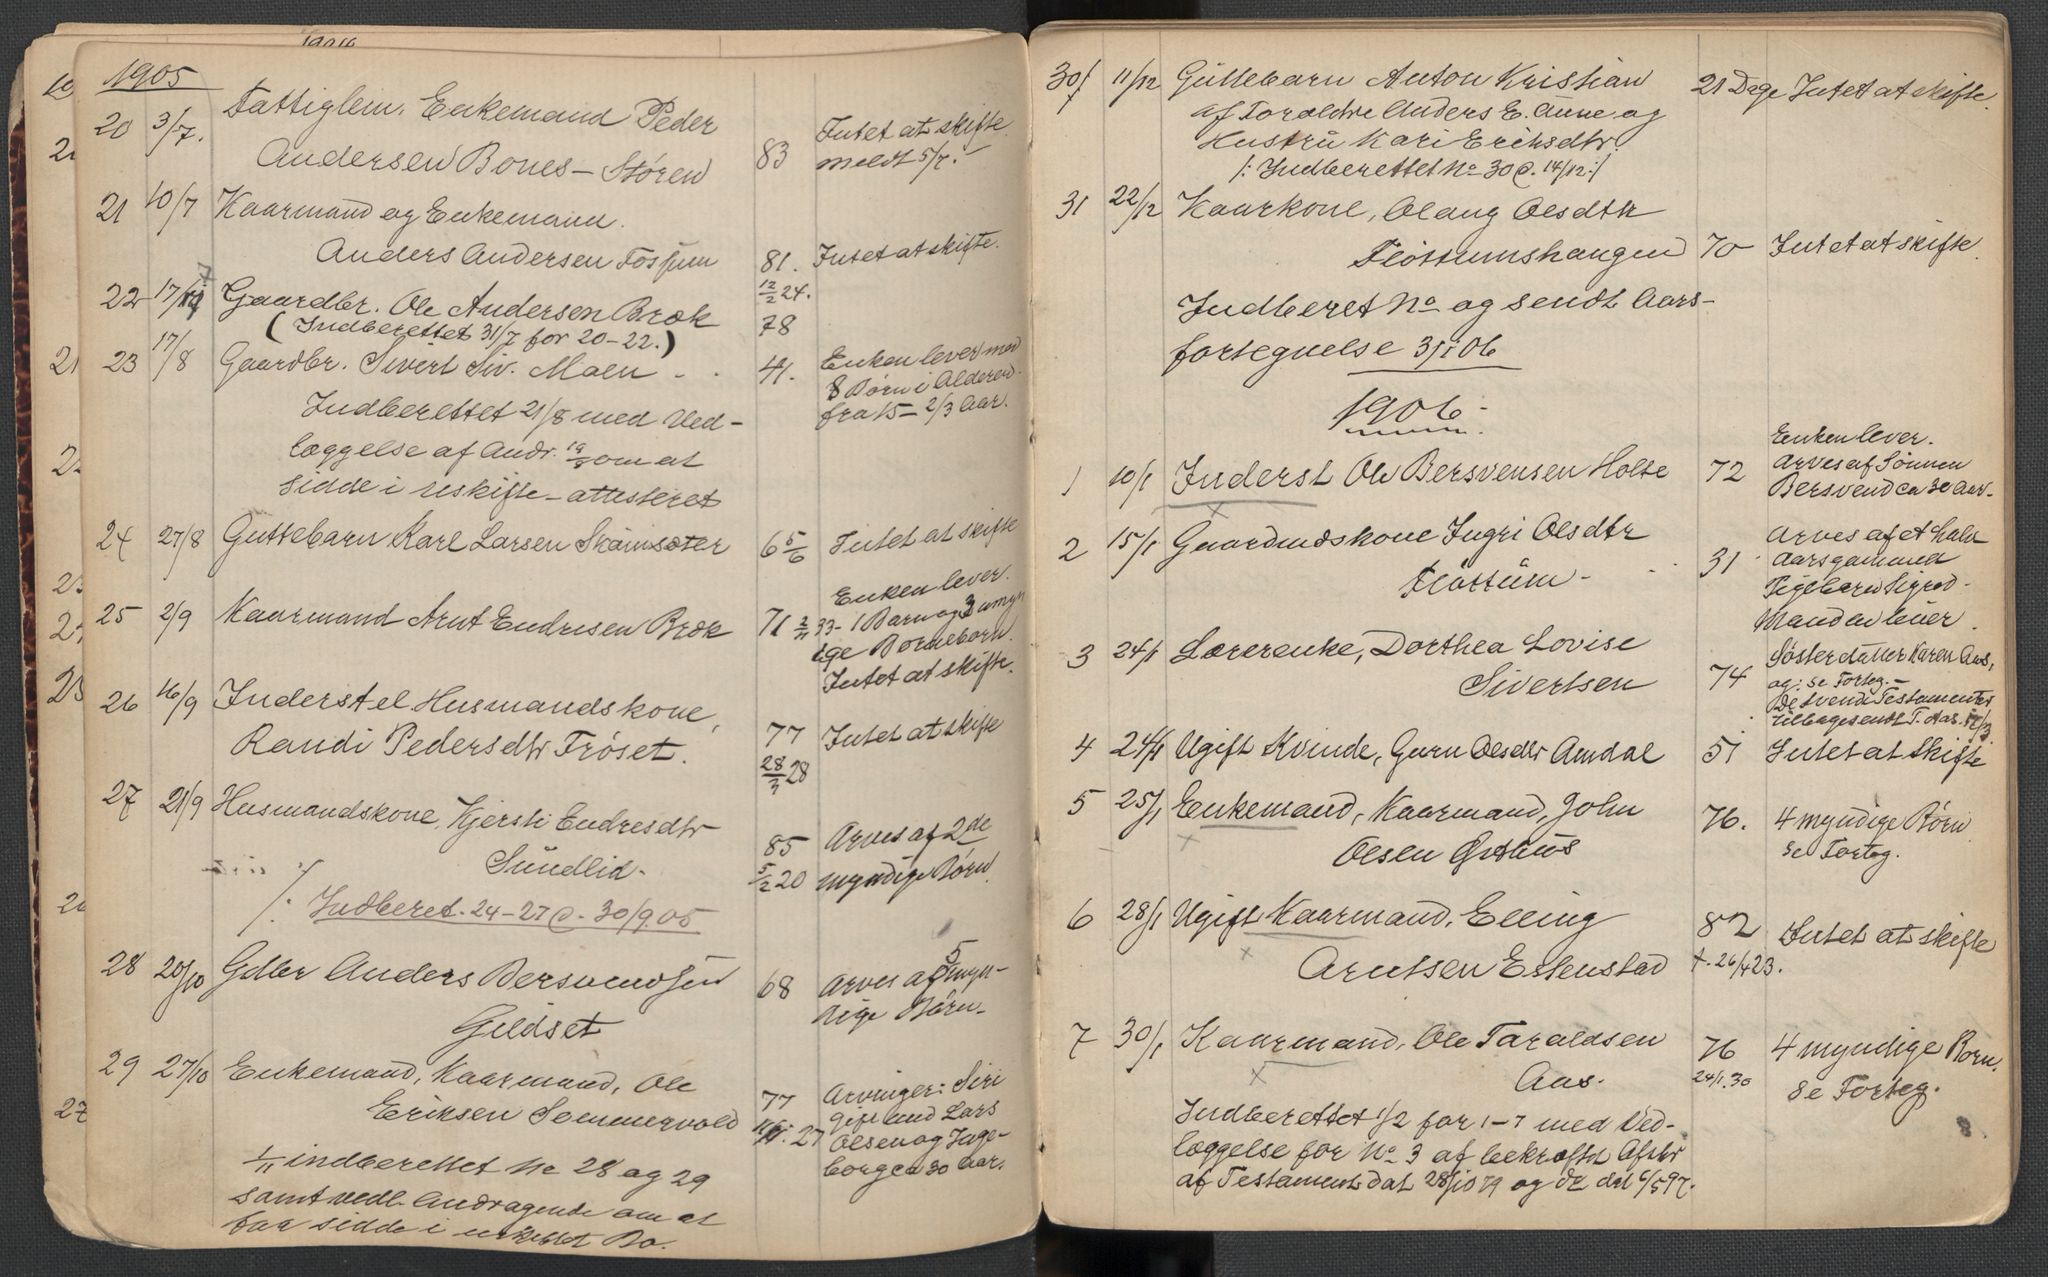 1905
20 3/7. Fattiglem. Enkemand Peder
Andersen Bones - Støren 83 Intet at skifte.
meldt 5/7.
21 10/7 Kaarmand og Enkemand.
Anders Andersen Fossum 81. Intet at skifte.
12/2 24.
22 17/7 Gaardbr. Ole Andersen Bræk 78
(Indberettet 31/7 for 20-22.)
23 17/8 Gaardbr. Sivert Siv. Moen - . 41. Enken lever med
8 Børn i Alderen
fra 15 - 2/3 Aar.
Indberettet 21/8 med Ved-
læggelse af Andr. 19/8 om at
sidde i uskifte - attesteret
24 27/8 Guttebarn Karl Larsen Skamsæter 6 5/6 Intet at skifte
25 2/9 Kaarmand Arnt Endresen Bræk 71 2/11 33 - Enken lever.
1 Barn og 3 umyn
ige Børnebørn.
Intet at skifte.
26 16/9 Inderst el Husmandskone,
Randi Pedersdtr Frøset. 77 Intet at skifte
28/3 28
27 21/9 Husmandskone Kjersti Endresdtr
Sundlid - 85 Arves af 2de
5/2 20 myndige Børn.
/: Indberet. 24-27 d. 30/9.05.
28 20/10 Gdbr Anders Bersvendsen
Geldset 68 Arves af 5 myn-
dige Børn.
29 27/10 Enkemand, Kaarmand, Ole
Eriksen Sommervold 77 Arvinger: Siri
gift med Lars
Olsen og Inge-
borg ca 30 Aar.
1/11 indberettet No 28 og 29
samt vedl. Andragende om at
faa sidde i uskiftet Bo.
30/ 11/12 Guttebarn Anton Kristian 21 Dage Intet at skifte.
af Foraldre Anders E. Aune og
Hustru Kari Eriksdtr.
/: Indberettet No 30 d. 14/12 :/
31 22/12 Kaarkone, Olaug Olsdtr
Fløttumshaugen 70 Intet at skifte.
Indberet No og sendt Aars-
fortegnelse 3/1 06
1906 -
1 10/1 Inderst Ole Bersvensen Holte 72 Enken lever.
Arves af Sønnen
Bersvend ca 30 Aar.
2 15/1 Gaardmdskone Ingri Olsdtr
Fløttum - 31 Arves af et halv
Aarsgammel
Pigebarn Sigrid -
Manden lever.
3 24/1 Lærerenke, Dorthea Lovise
Sivertsen 74 Søsterdatter Karen Aas,
og: se Forteg. -
Testamenter
tilbagesendt T. Aas.
4 24/1 Ugift Kvinde, Guru Olsdtr Amdal 51 Intet at Skifte
5 25/1 Enkemand, Kaarmand, John
Olsen 76. 4 myndige Børn
se Forteg.
6 28/1 Ugift Kaarmand, Elling
Arntsen Estenstad 82 Intet at skifte
+. 26/4 23.
7 30/1 Kaarmand, Ole Taraldsen
Aas. 76 4 myndige Børn.
24/1. 30 se Forteg.
Indberettet 1/2 for 1-7 med Ved-
læggelse for No 3 af bekræftet Afskr
af Testament dat 28/10 79 og do dat 6/5 97.